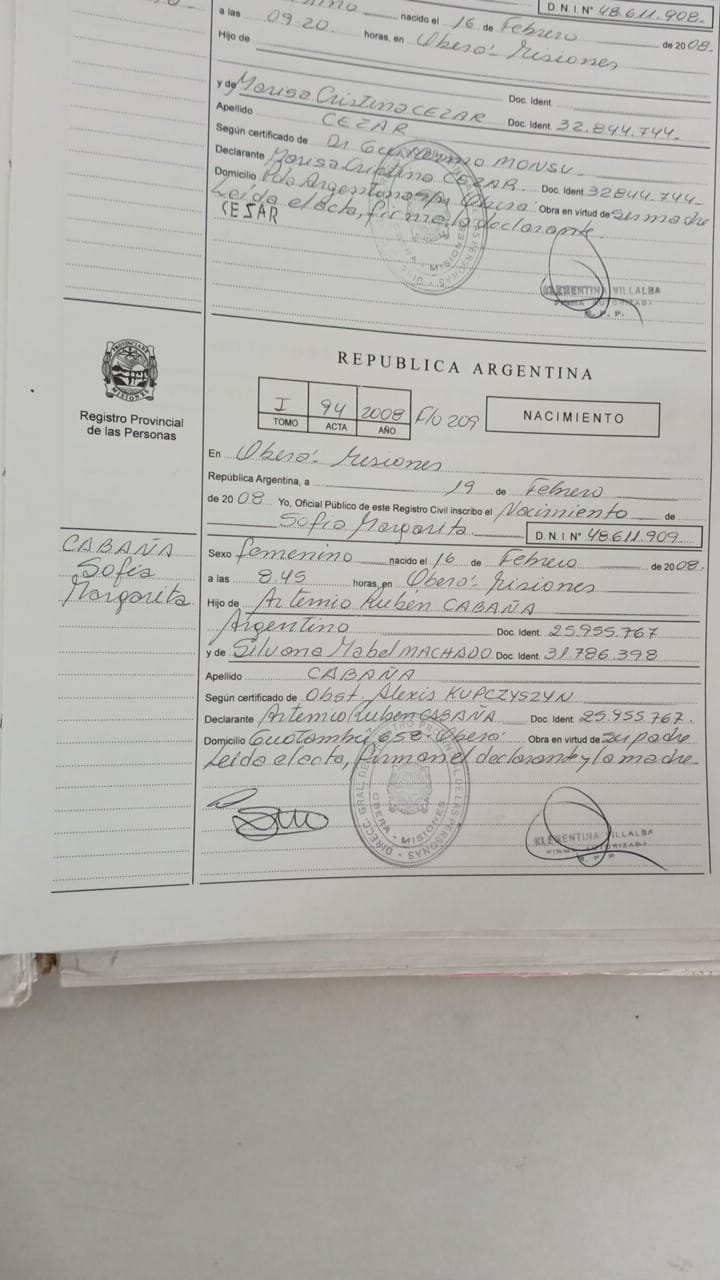 D.N.I. N° 48.611.908.-
a las 09.20. horas, en Oberá - Misiones
nacido el 16 de Febrero de 2008.
Hijo de
Doc. Ident
y de Marisa Cristina CEZAR Doc. Ident. 32.844.744.-
Apellido CEZAR
Según certificado de Dr. Guillermo MONSU.-
Declarante Marisa Cristina CEZAR Doc. Ident 32844.744.-
Domicilio Pdo Argentino Oberá. Obra en virtud de su madre
Leída el acta, firma la declarante.
CESAR
KLEMENTINA VILLALBA
FIRMA AUTORIZADA
R. P. P.
REPUBLICA ARGENTINA
PROVINCIA DE MISIONES
Registro Provincial
de las Personas
I 94 2008 F/o 209
TOMO ACTA AÑO
NACIMIENTO
En Oberá - Misiones
República Argentina, a 19 de Febrero
de 2008 Yo, Oficial Público de este Registro Civil inscribo el Nacimiento de
Sofía Margarita D.N.I. N° 48.611.909
CABAÑA
Sofía
Margarita
Sexo femenino nacido el 16 de Febrero de 2008.
a las 8.45 horas, en Oberá - Misiones
Hijo de Artemio Rubén CABAÑA
Argentino Doc. Ident. 25.955.767
y de Silvana Mabel MACHADO Doc. Ident. 31.786.398
Apellido CABAÑA
Según certificado de Obst. Alexis KUPCZYSZYN
Declarante Artemio Ruben CABAÑA Doc. Ident. 25.955.767.
Domicilio Guatambú 658 - Oberá. Obra en virtud de su padre
Leída el acta, firman el declarante y la madre.
DIRECC. GRAL. DEL REGISTRO PROVINCIAL DE LAS PERSONAS
OBERA - MISIONES
KLEMENTINA VILLALBA
FIRMA AUTORIZADA
R. P. P.